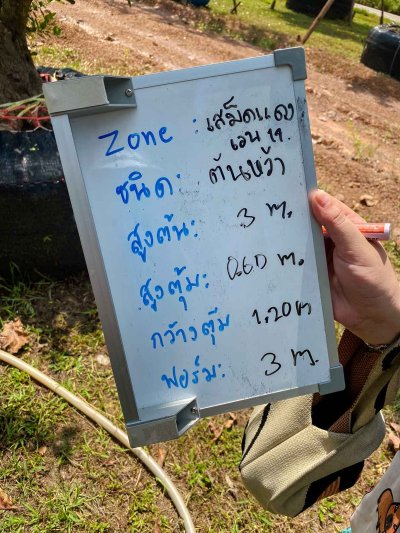 Zone : เสม็ดแดง
เวน 19
ชนิด: ต้นหว้า
สูงต้น: 3 m.
สูงตุ้ม: 0.60 m.
กว้างตุ้ม 1.20 m
ฟอร์ม: 3 m.